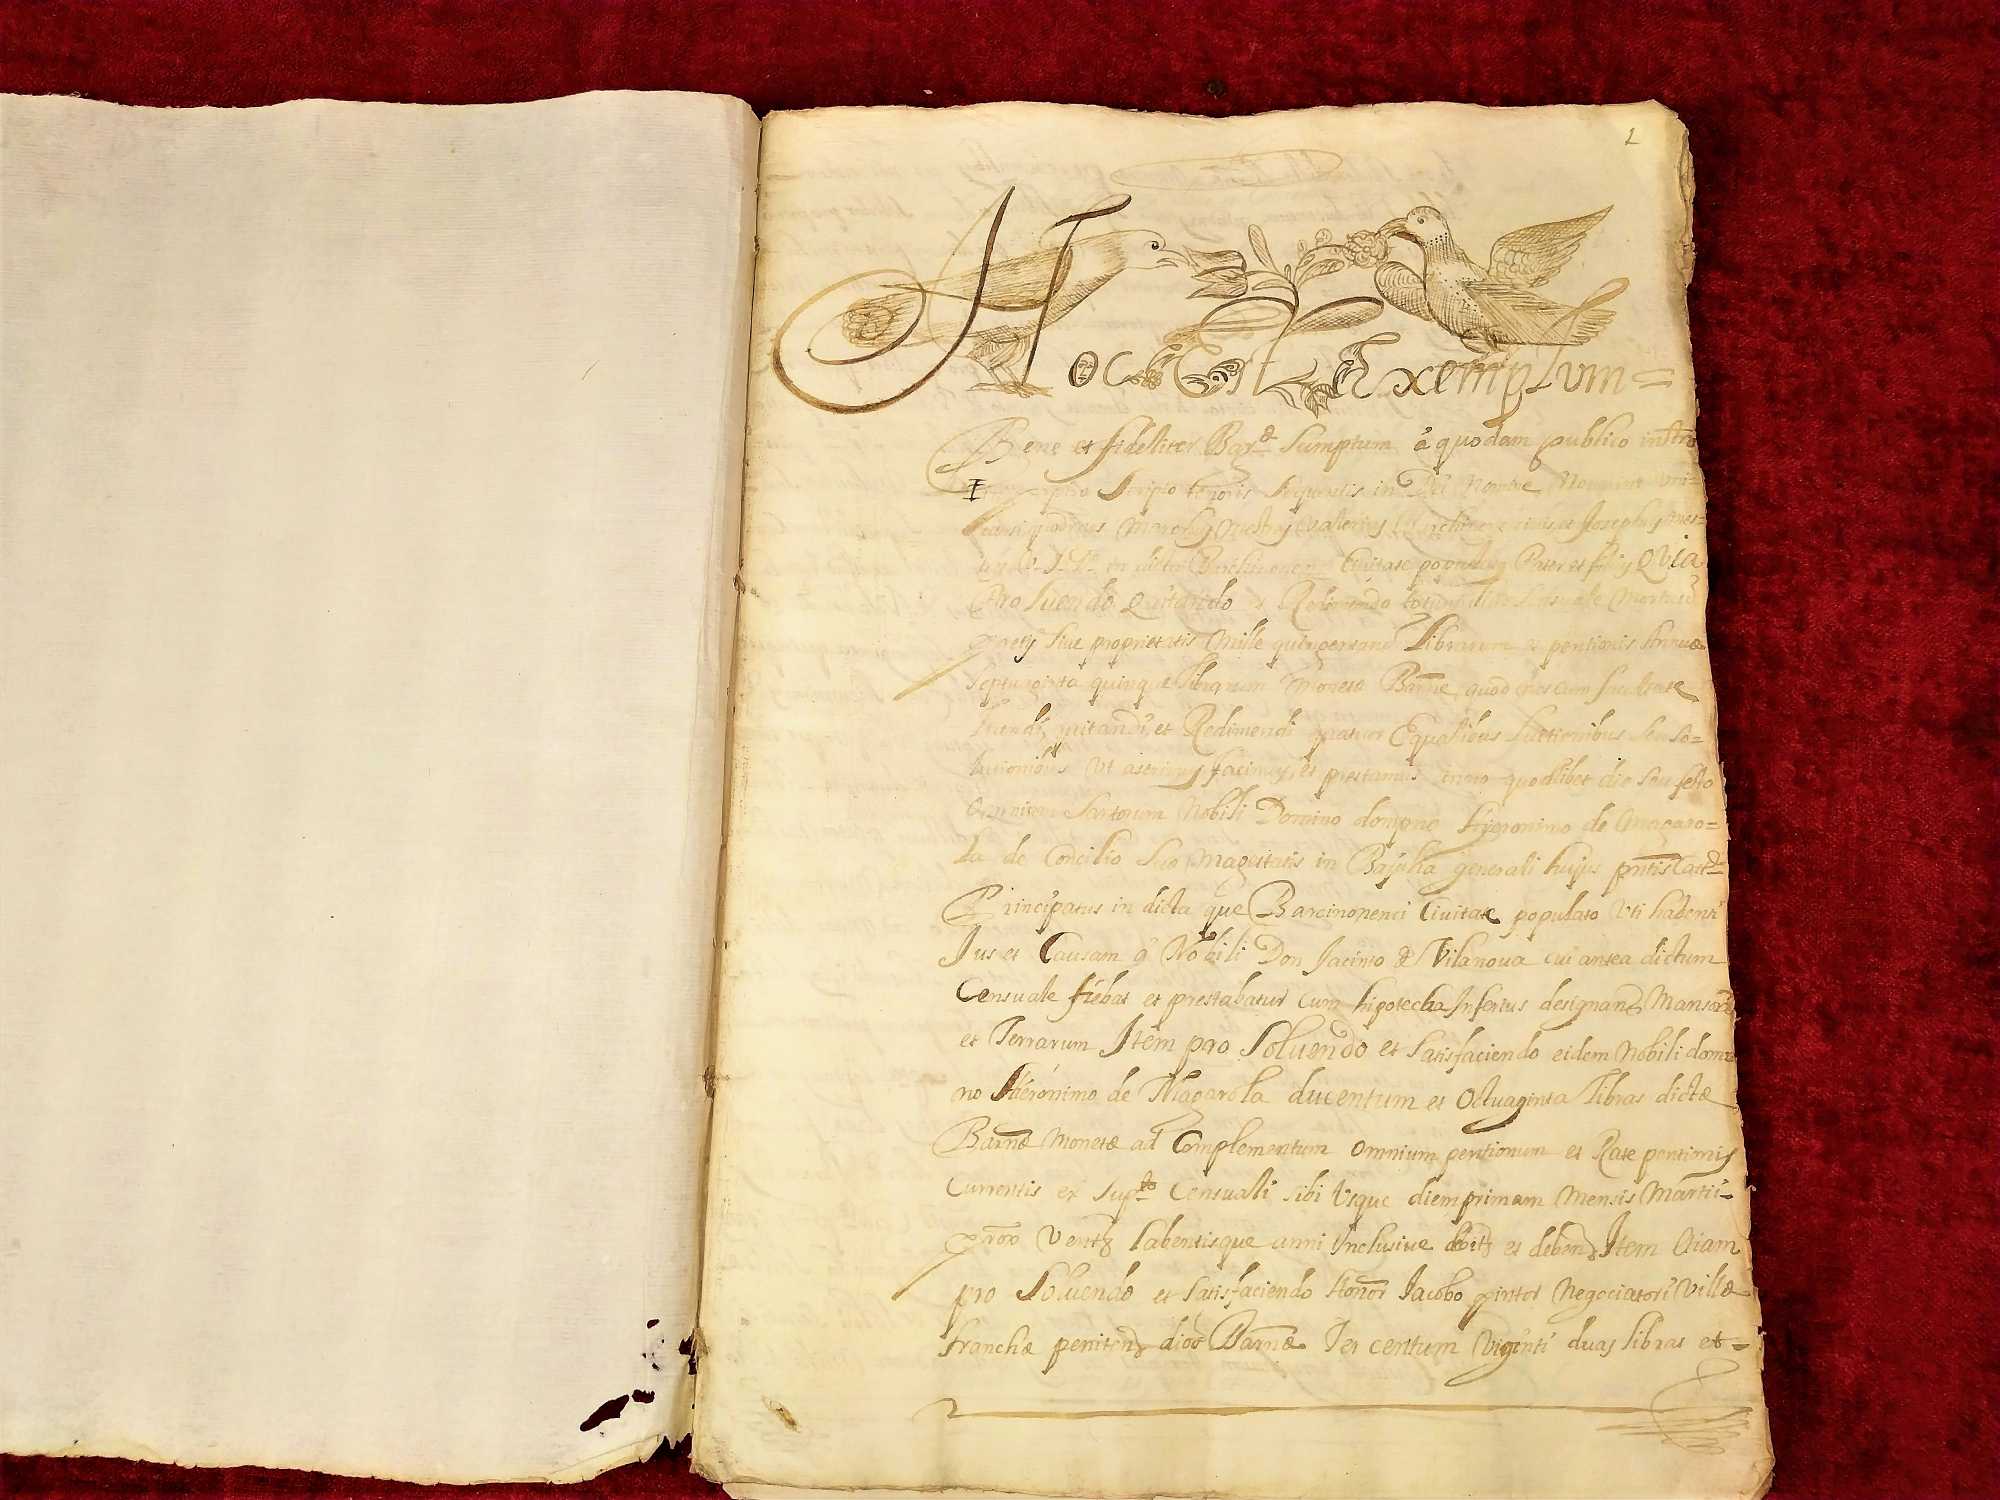 1
Hoc Est Exemplum=
Bene et fideliter Barᵉ Sumptum a quodam publico instrō
scripto tenoris sequentis in Dei Nomine Noverint Uni-
in dicta Civitate populati Pater et filij QVIA
Pro Luendo Quitando et Redimendo totum illud Censuale Mortuū
pretij sive proprietatis Mille quingentarū Librarum et pentionis Annuæ
septuaginta quinque librarum Monetæ Barn̄e quod nos cum facultate
luendi, quitandi, et Redimendi quatuor Equalibus luctionibus seu so-
lutionibus Ut astricti facimus et prestamus quodlibet die seu festo
Omnium Sanctorum Nobili Domino dompno Hyeronimo de Magaro=
la de Concilio suo Magestatis in Bajulia generali hujus pn̄tis
Principatus in dicta que Barcinonenci Civitate populato Uti habenti
Jus et Causam a Nobili Don Jacinto de Vilanova cui antea dictum
Censuale fiebat et prestabatur cum hipotecha Inferius designand Mansorū
et Terrarum Item pro Soluendo et Satisfaciendo eidem Nobili domp
no Hieronimo de Magarola ducentum et Octuaginta libras dictæ
Barn̄æ Monetæ ad Complementum Omnium pentionum et Rate pentionis
Currentis ex supᵗᵒ Censuali sibi Usque diem primam Mensis Martii-
labentisque anni Inclusive debit et deben Item Etiam
pro Soluendo et Satisfaciendo Honor Jacobo pintor Negociatori Villæ
franchæ peniten dios Barn̄æ Ter centum Viginti duas libras et=